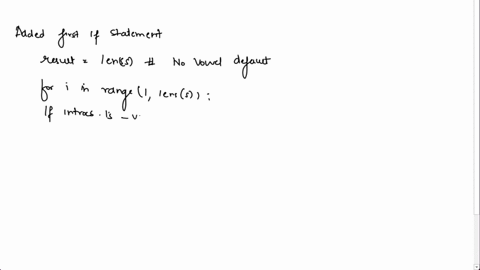 Added first if statement
result = len(s) # No vowel default
for i in range(1, len(s)):
If intros.is_v